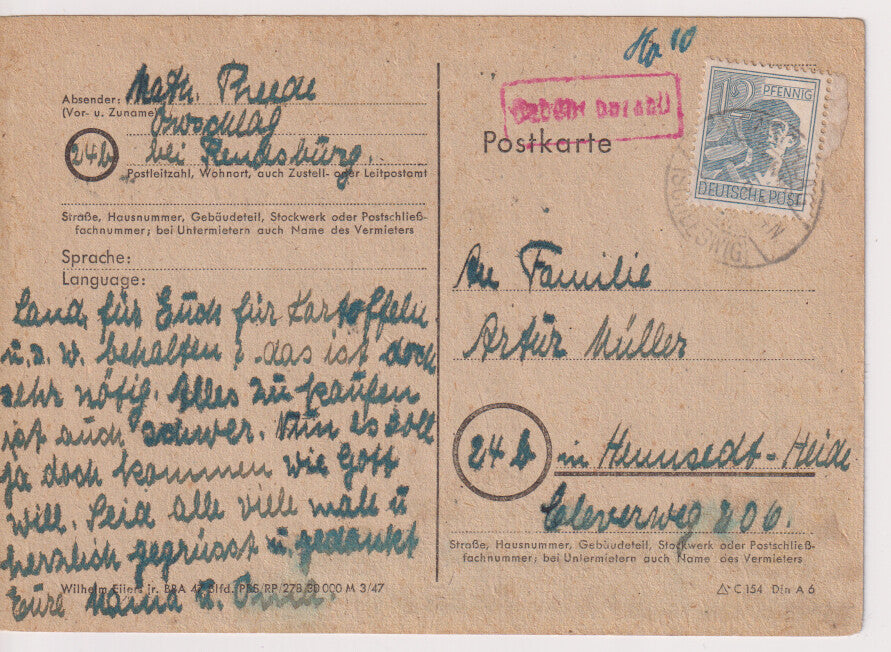 Hp 10
Absender: Math. Theede
(Vor- u. Zuname)
24b bei Rendsburg.
Postleitzahl, Wohnort, auch Zustell- oder Leitpostamt
Straße, Hausnummer, Gebäudeteil, Stockwerk oder Postschließ-
fachnummer; bei Untermietern auch Name des Vermieters
Sprache:
Language:
Land für Euch für Kartoffeln
u.s.w. behalten, das ist doch
sehr nötig. Alles zu kaufen
ist auch schwer. Nun es soll
ja doch kommen wie Gott
will. Seid alle viele male u
herzlich gegrüsst u. gedankt
Eure Mama u. Oma.
Wilhelm Eilers jr. BBA 47 lfd. PBS/RP/278 30000 M 3/47
Gebühr bezahlt
Postkarte
12 PFENNIG
DEUTSCHE POST
(SCHLESWIG)
An Familie
Artur Müller
24b in Hennsedt-Heide
Cleverweg 206.
Straße, Hausnummer, Gebäudeteil, Stockwerk oder Postschließ-
fachnummer; bei Untermietern auch Name des Vermieters
C 154 Din A 6